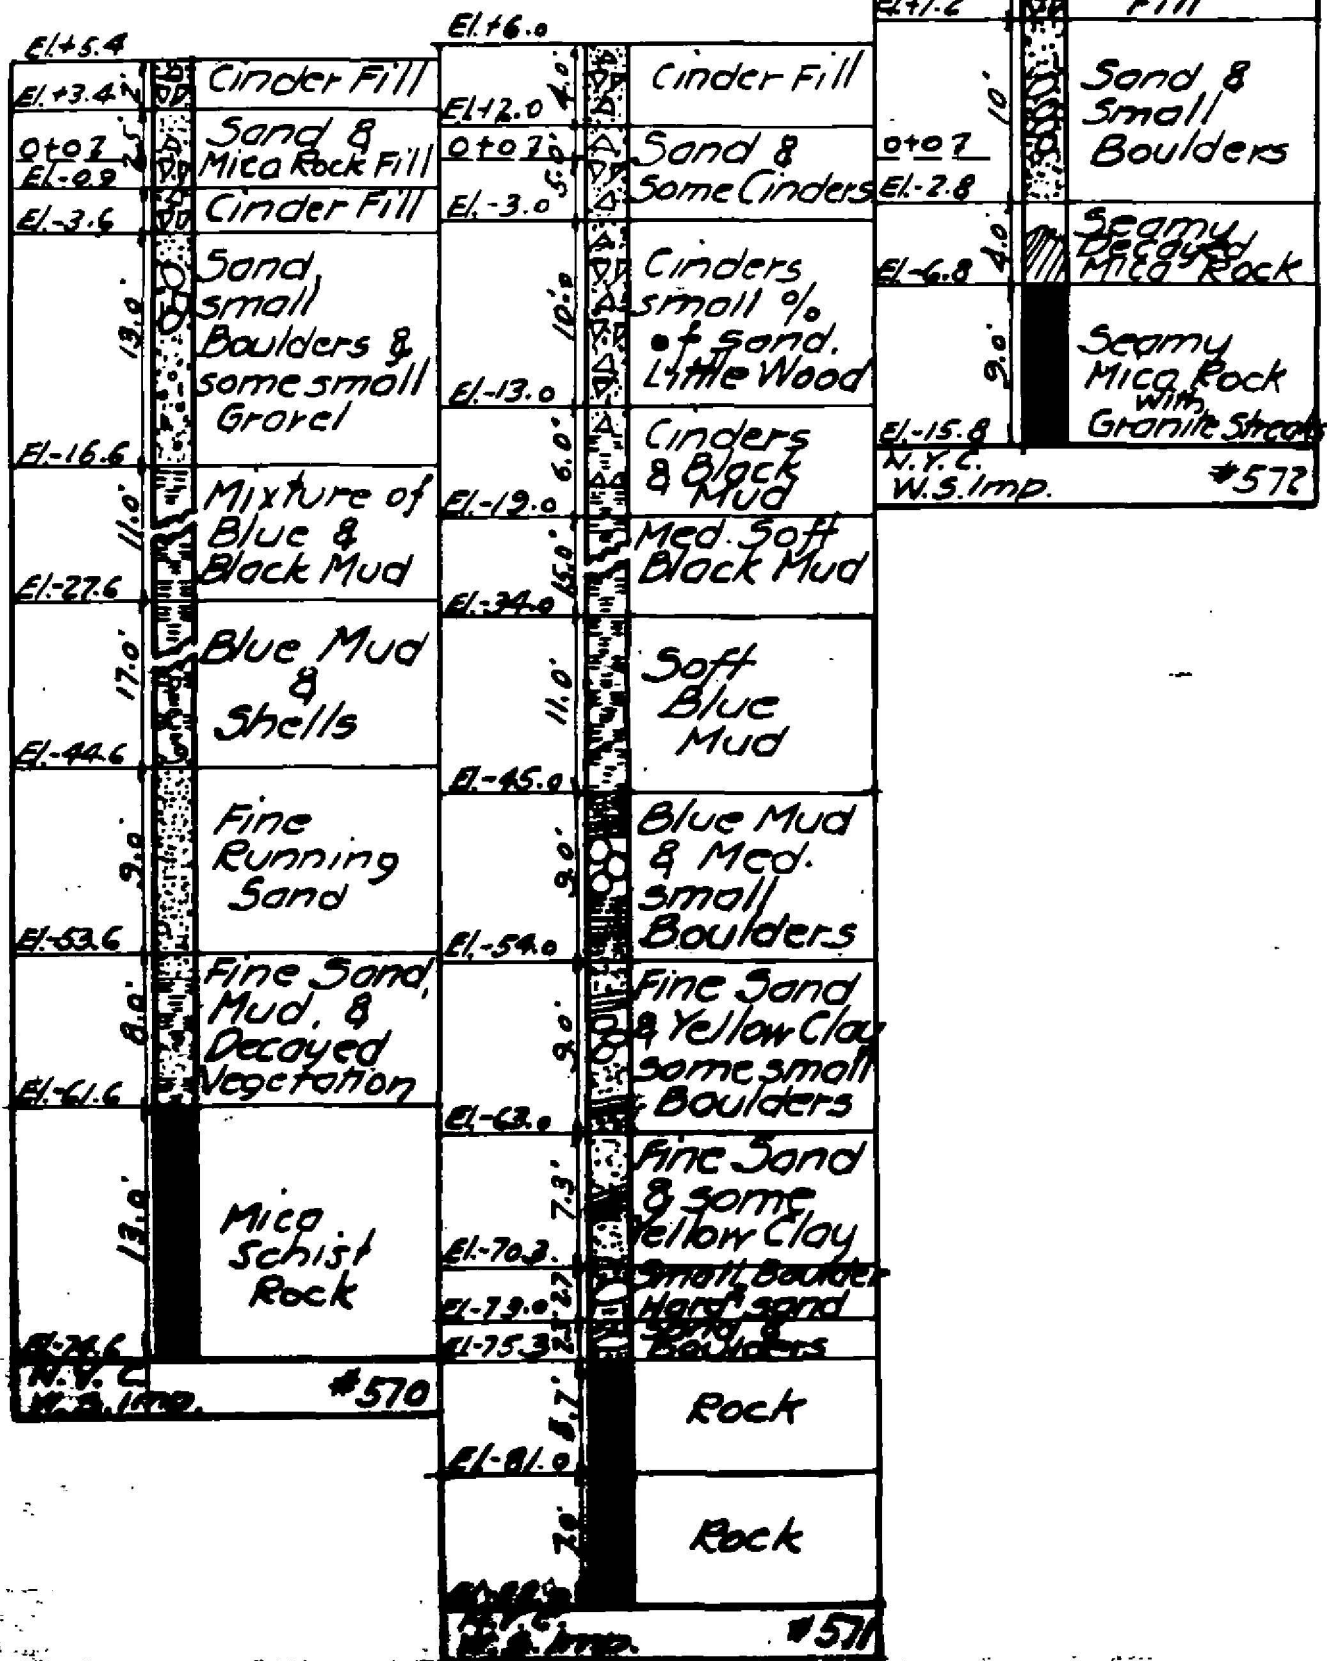 El.+5.4
2'
Cinder Fill
El.+3.4
2.5'
Sand &
Mica Rock Fill
0+07
El.-0.9
Cinder Fill
El.-3.6
13.0'
Sand,
small
Boulders &
some small
Gravel
El.-16.6
11.0'
Mixture of
Blue &
Black Mud
El.-27.6
17.0'
Blue Mud
&
Shells
El.-44.6
9.0'
Fine
Running
Sand
El.-53.6
8.0'
Fine Sand,
Mud, &
Decayed
Vegetation
El.-61.6
13.0'
Mica
Schist
Rock
El.-74.6
N.Y.C.
W.S. Imp.
#570
El.+6.0
4.0'
Cinder Fill
El.+2.0
0+07
5.0'
Sand &
Some Cinders
El.-3.0
10.0
Cinders
small %
of sand.
Little Wood
El.-13.0
6.0'
Cinders
& Black
Mud
El.-19.0
15.0'
Med. Soft
Black Mud
El.-34.0
11.0'
Soft
Blue
Mud
El.-45.0
9.0'
Blue Mud
& Med.
small
Boulders
El.-54.0
9.0'
Fine Sand
& Yellow Clay
some small
Boulders
El.-63.0
7.3'
Fine Sand
& some
Yellow Clay
El.-70.3
2.7'
Small Boulder
Hard sand
El.-73.0
2.3'
Sand &
Boulders
El.-75.3
5.7'
Rock
El.-81.0
7.0'
Rock
N.Y.C.
W.S. Imp.
#571
El.+7.2
Fill
10'
Sand &
Small
Boulders
0+07
El.-2.8
4.0'
Seamy
Decayed
Mica Rock
El.-6.8
9.0'
Seamy
Mica Rock
with
Granite Streaks
El.-15.8
N.Y.C.
W.S. Imp.
#572